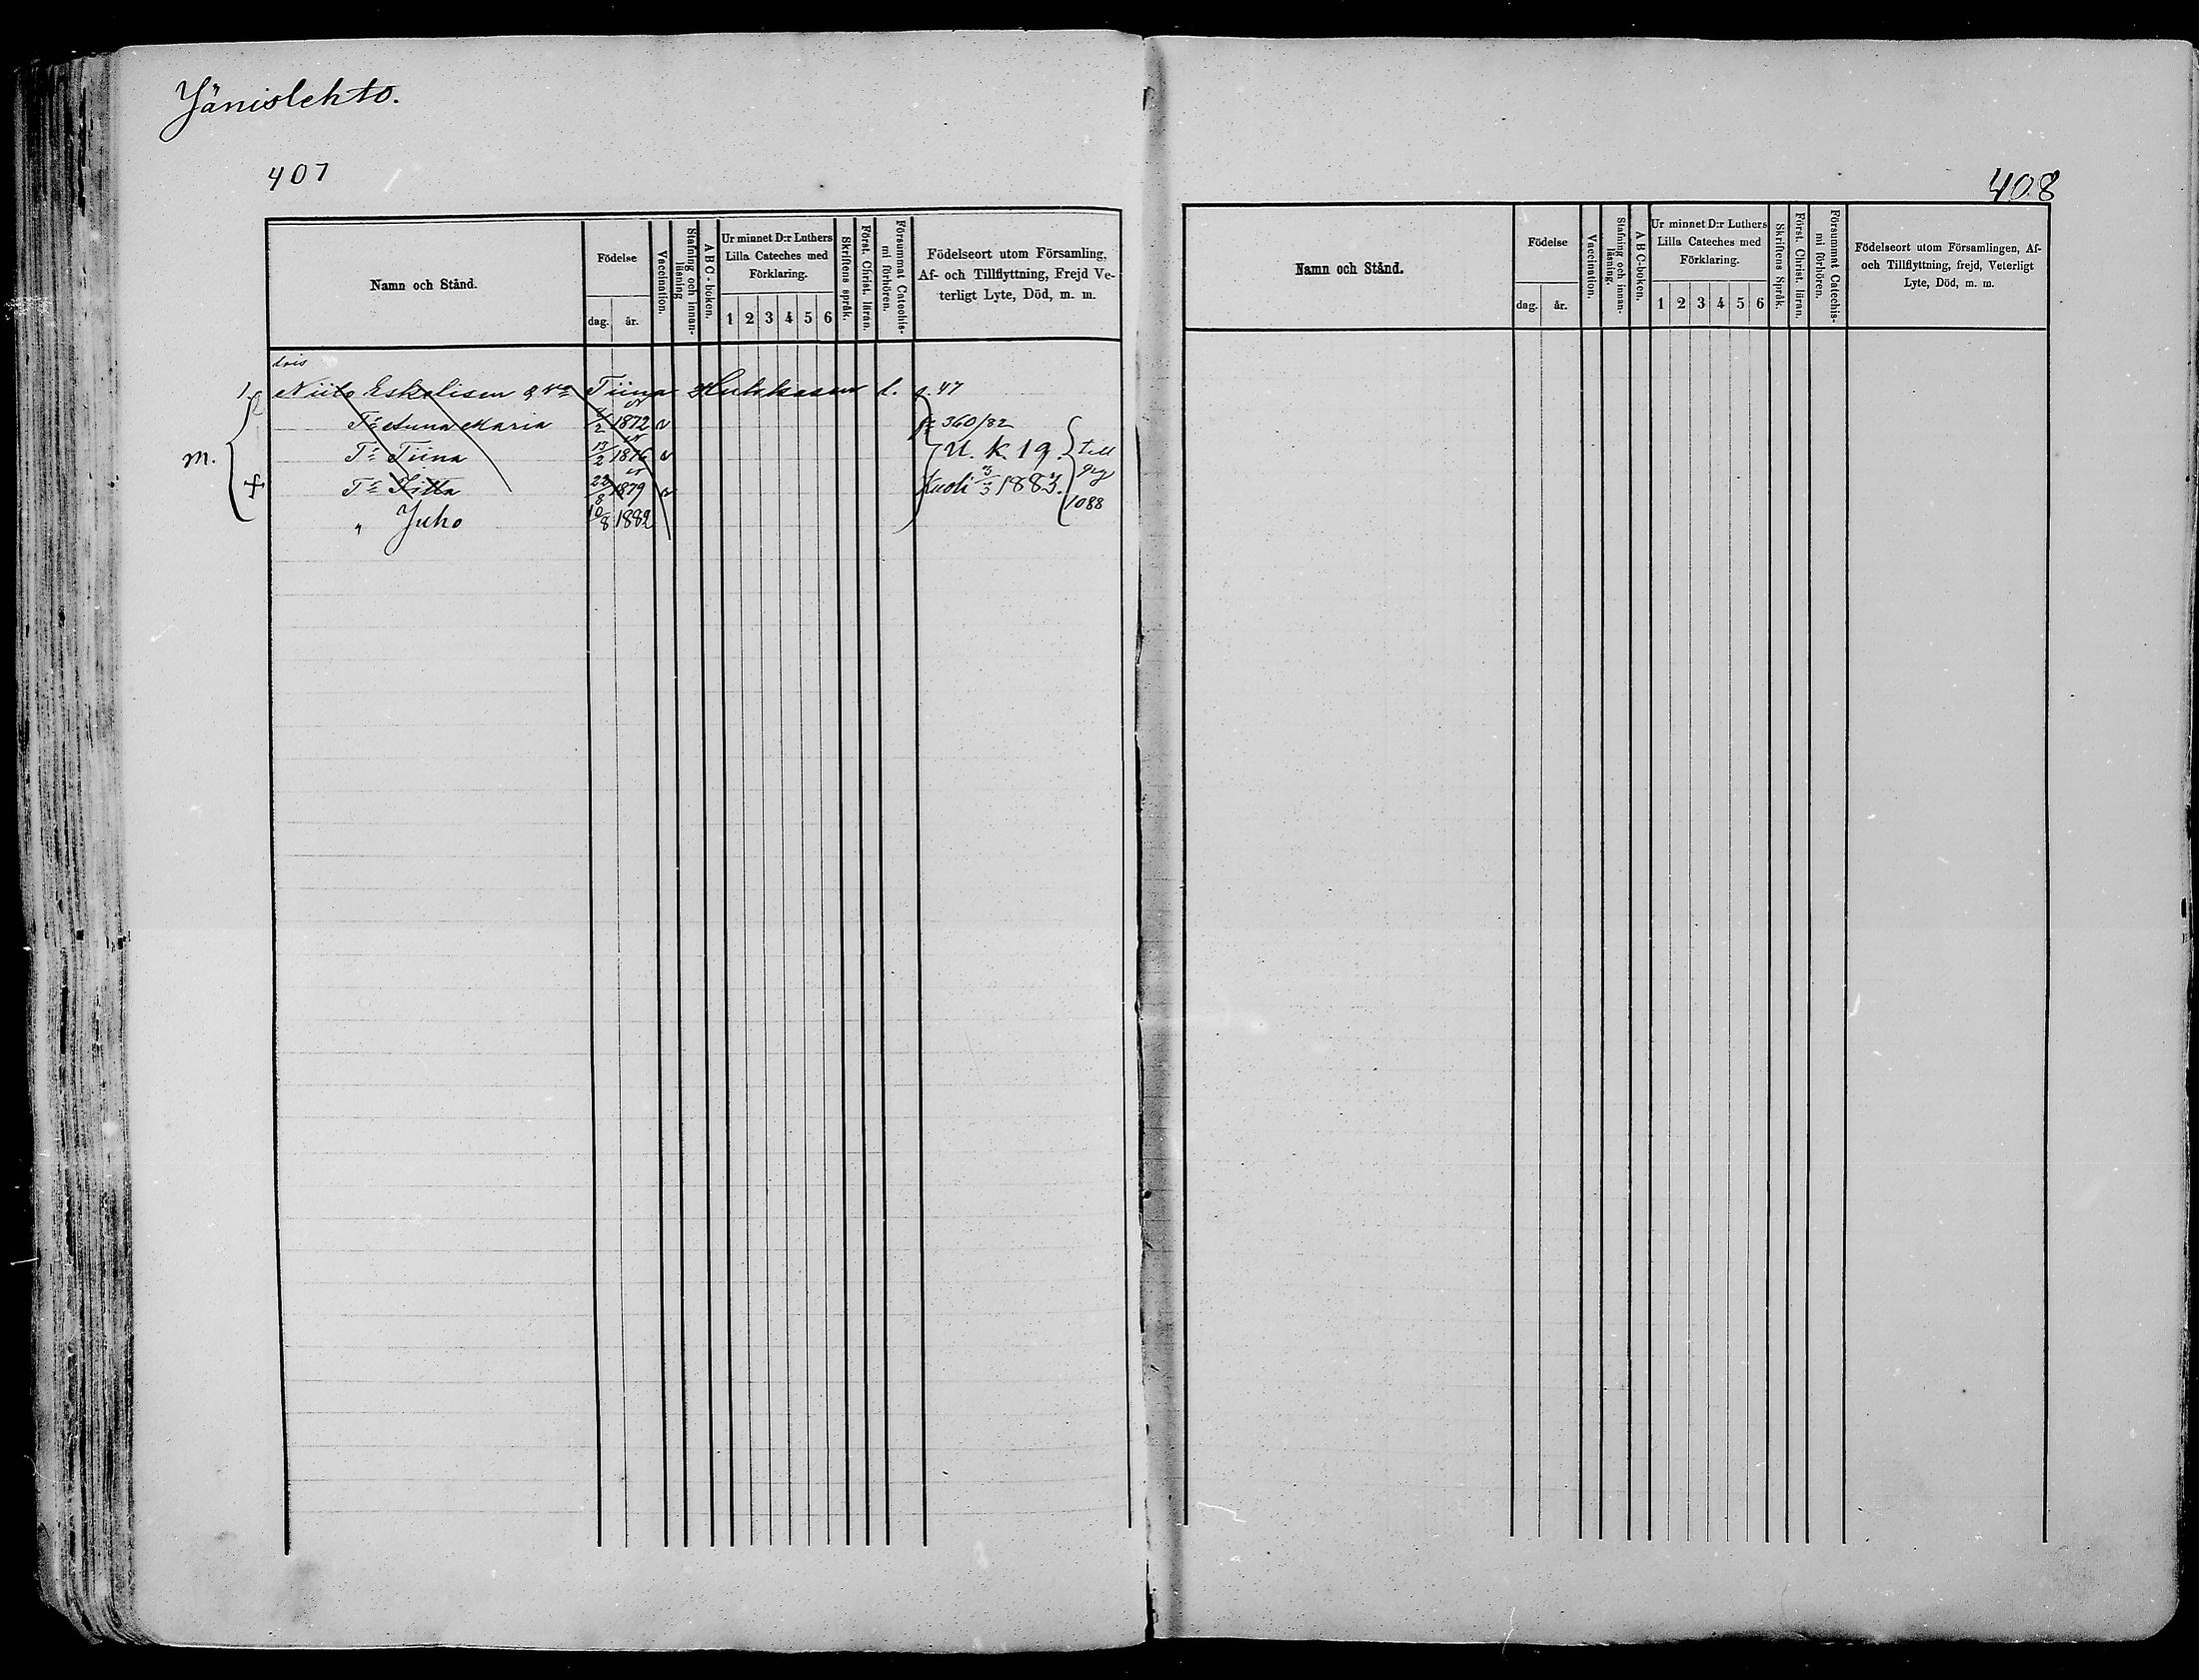 Jänislehto.
407
Namn och Stånd.
Födelse
dag. år.
Vaccination.
Stafning och innanläsning
ABC-boken.
Ur minnet D:r Luthers
Lilla Cateches med
Förklaring.
1 2 3 4 5 6
Skriftens språk.
Först. Christ. läran.
Försummat Catechismi förhören.
Födelseort utom Församling,
Af- och Tillflyttning, Frejd Ve-
terligt Lyte, Död, m. m.
1. Niilo Eskelisen Tiina Hukkasen l. s. 47
Tr Anna Maria 2 1872 v 360/82
m. Tr Tiina 17/2 1876 v U. k. 19. till
+ Tr Iitta 22/8 1879 v Kuoli 3/3 1883. pag
" Juho 10/8 1882 1088
408
Namn och Stånd.
Födelse
dag. år.
Vaccination.
Stafning och innan-
läsning.
ABC-boken.
Ur minnet D:r Luthers
Lilla Cateches med
Förklaring.
1 2 3 4 5 6
Skriftens Språk.
Först. Christ. läran.
Försummat Catechis-
mi förhören.
Födelseort utom Församlingen, Af-
och Tillflyttning, frejd, Veterligt
Lyte, Död, m. m.